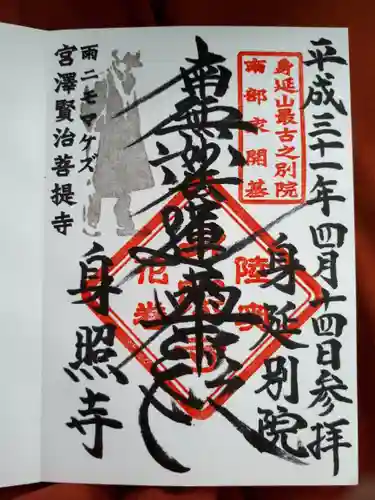 平成三十一年四月十四日参拝
身延山最古之別院
南部家開基
身延別院
南無妙法蓮華経
陸奥
花巻
雨ニモマケズ
宮澤賢治菩提寺
身照寺